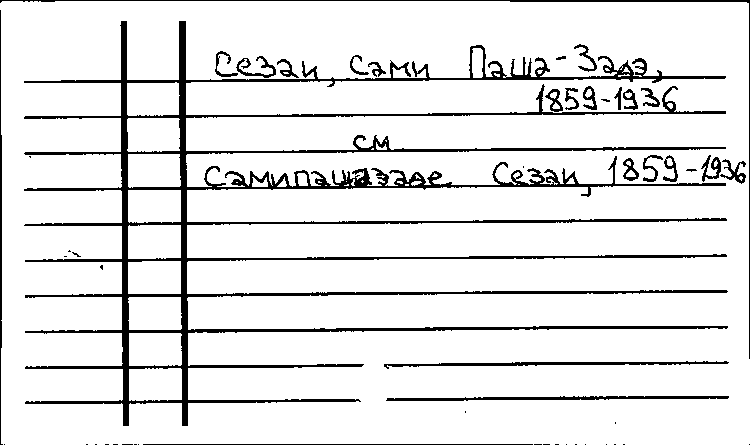 Сезаи, Сами Паша-Задэ,
1859-1936
см
Самипашазаде Сезаи, 1859-1936